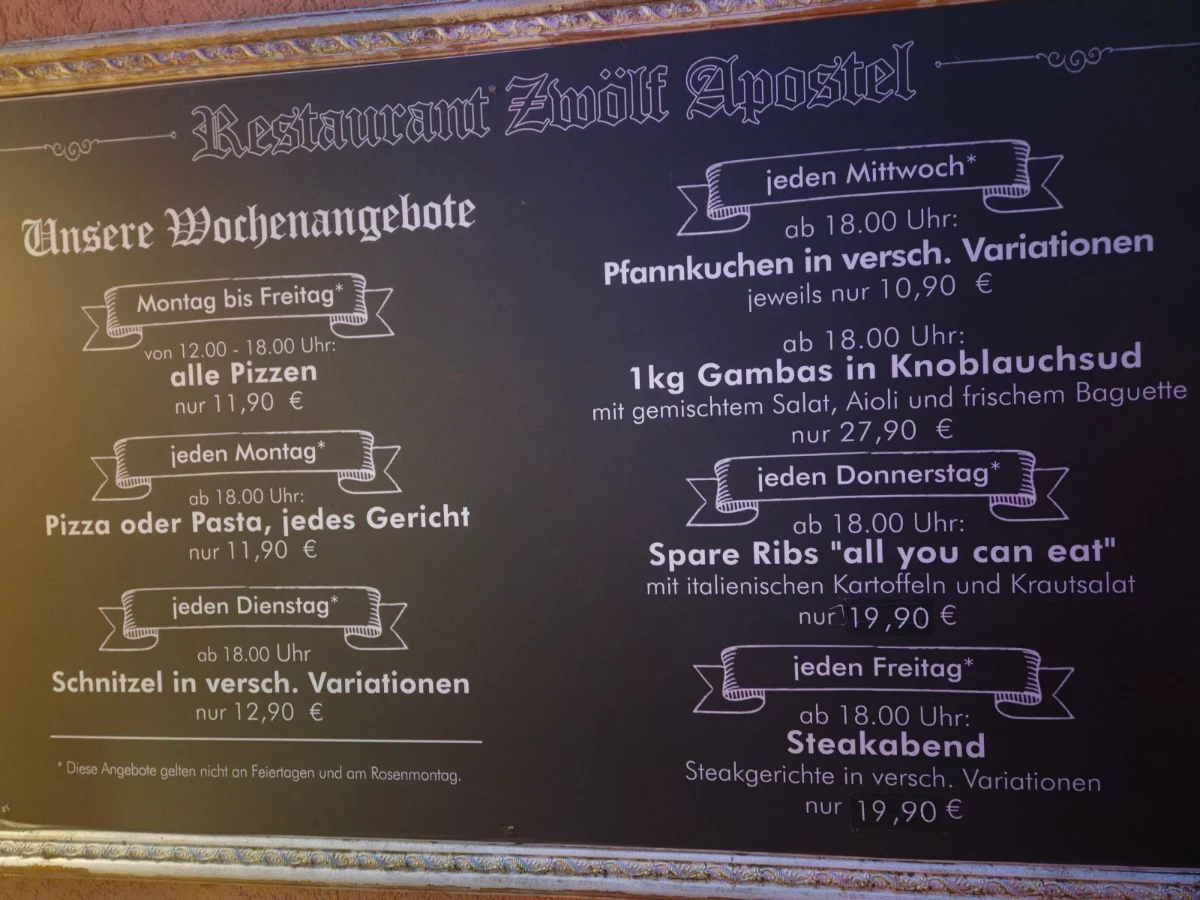 Restaurant Zwölf Apostel
Unsere Wochenangebote
Montag bis Freitag*
von 12.00 - 18.00 Uhr:
alle Pizzen
nur 11,90 €
jeden Montag*
ab 18.00 Uhr:
Pizza oder Pasta, jedes Gericht
nur 11,90 €
jeden Dienstag*
ab 18.00 Uhr
Schnitzel in versch. Variationen
nur 12,90 €
* Diese Angebote gelten nicht an Feiertagen und am Rosenmontag.
jeden Mittwoch*
ab 18.00 Uhr:
Pfannkuchen in versch. Variationen
jeweils nur 10,90 €
ab 18.00 Uhr:
1kg Gambas in Knoblauchsud
mit gemischtem Salat, Aioli und frischem Baguette
nur 27,90 €
jeden Donnerstag*
ab 18.00 Uhr:
Spare Ribs "all you can eat"
mit italienischen Kartoffeln und Krautsalat
nur 19,90 €
jeden Freitag*
ab 18.00 Uhr:
Steakabend
Steakgerichte in versch. Variationen
nur 19,90 €